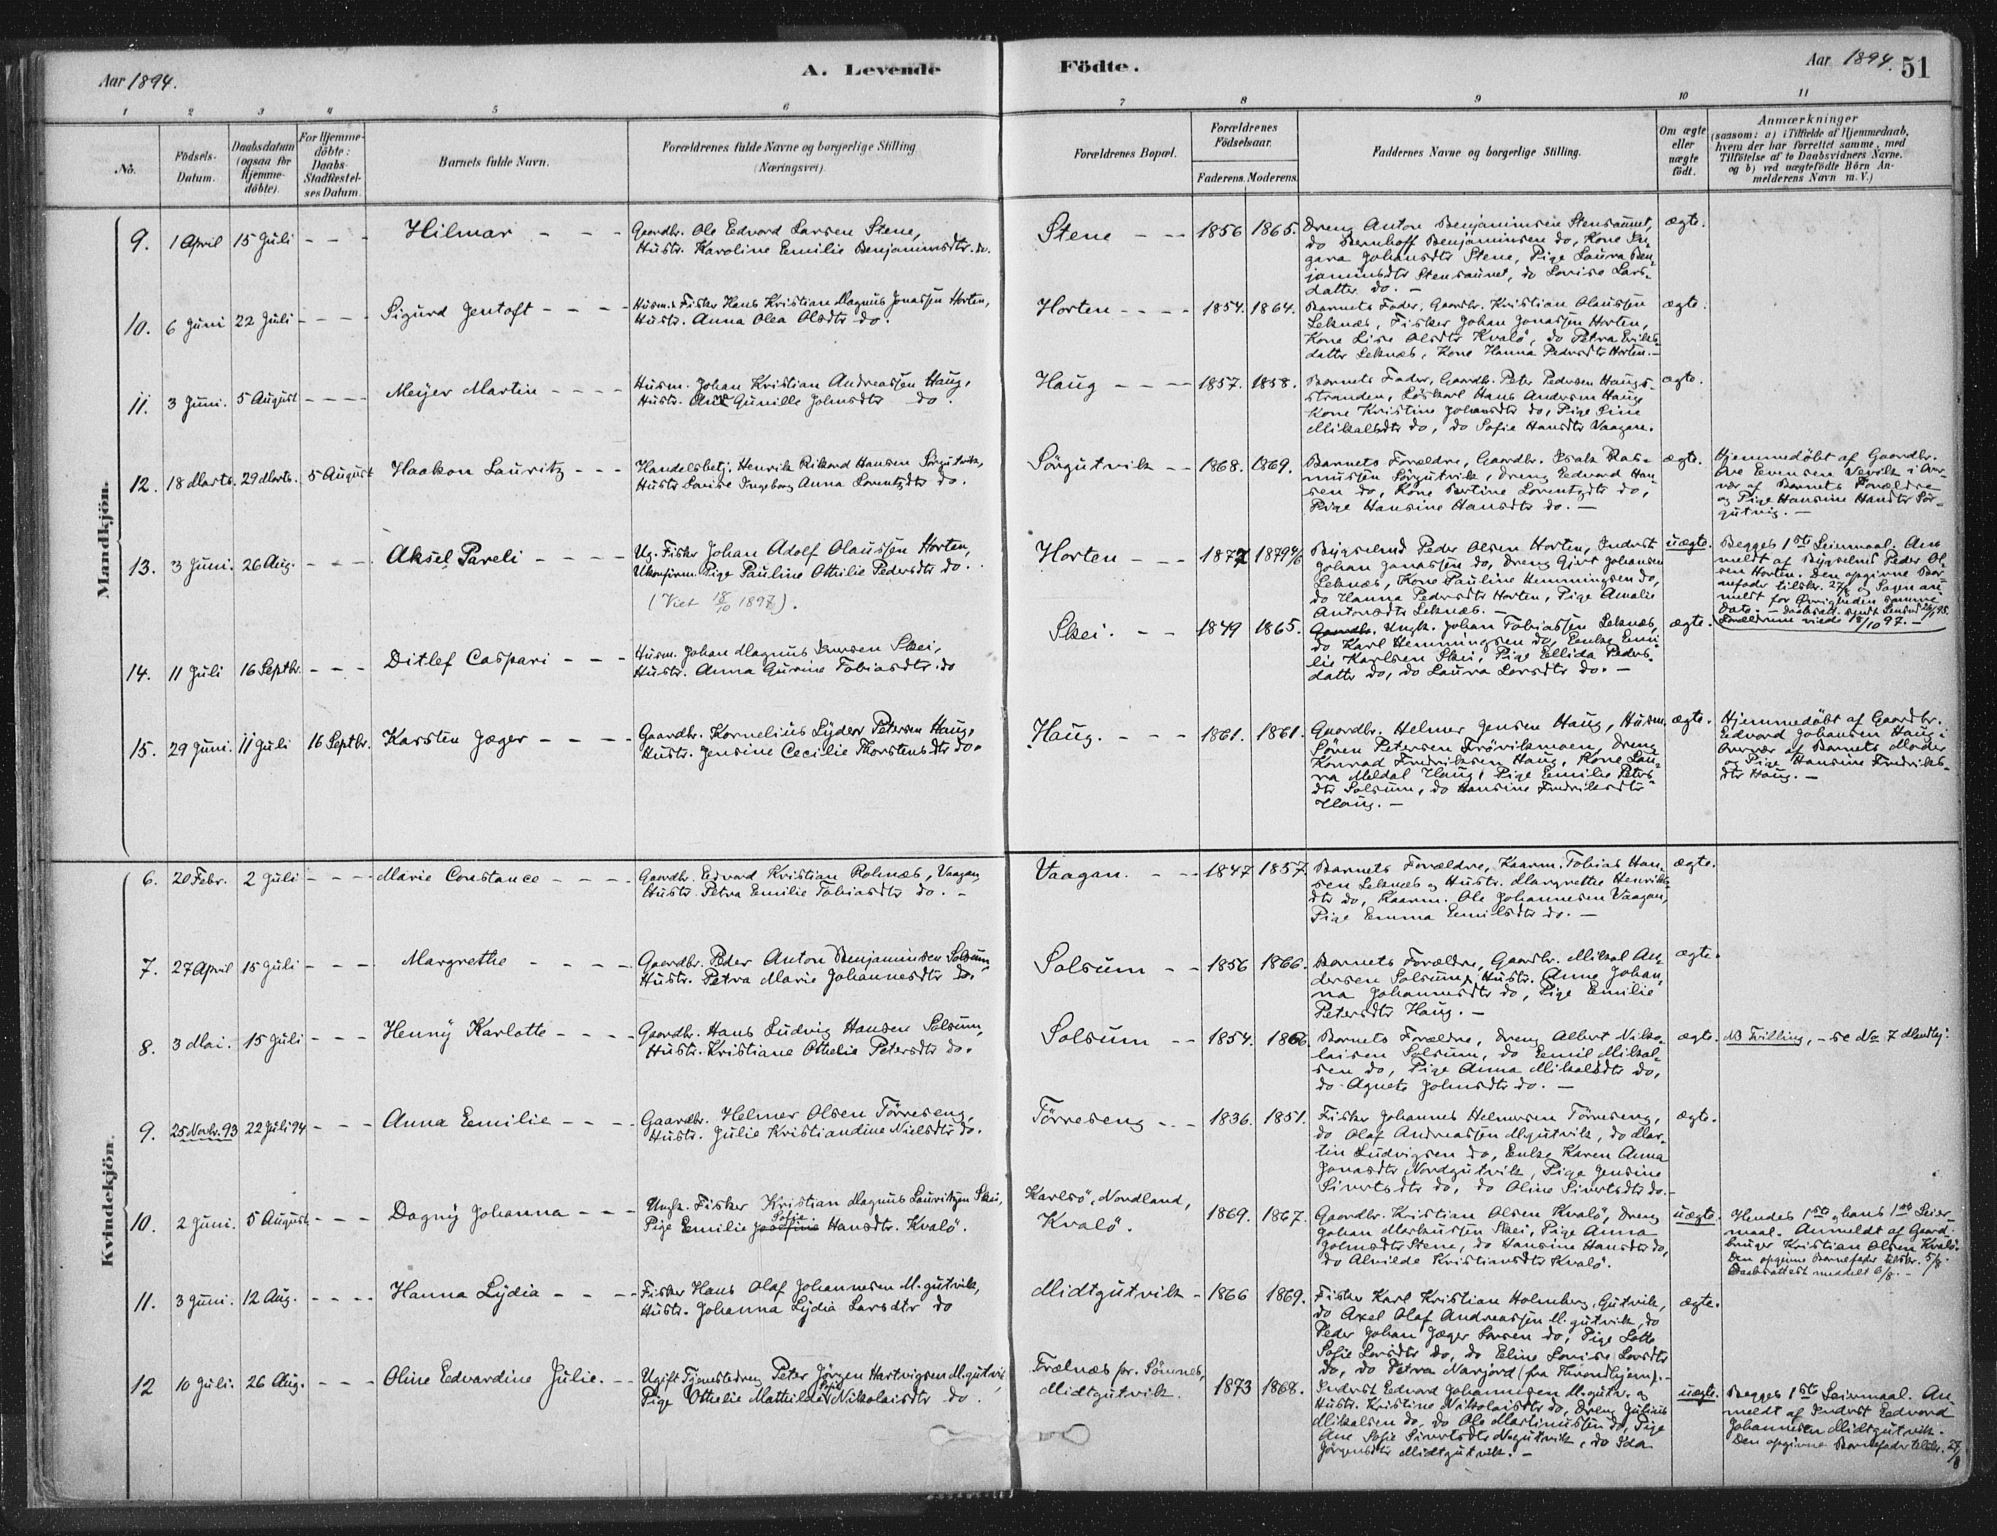 Aar 1894.
A. Levende Födte.
Aar 1894. 51
1 2 3 4 5 6 7 8 9 10 11
No.
Födsels-
Datum.
Daabsdatum
(ogsaa for
Hjemme-
döbte).
For Hjemme-
döbte:
Daabs-
Stadfæstel-
ses Datum.
Barnets fulde Navn.
Forældrenes fulde Navne og borgerlige Stilling
(Næringsvei).
Forældrenes Bopæl.
Forældrenes
Födselsaar.
Faderens. Moderens.
Faddernes Navne og borgerlige Stilling.
Om ægte
eller
uægte
födt.
Anmærkninger
(saasom: a) i Tilfælde af Hjemmedaab,
hvem der har forrettet samme, med
Tilföielse af to Daabsvidners Navne,
og b) ved uægtefödte Börn An-
melderens Navn m. V.)
Mandkjön.
9. 1 April 15 Juli - - - Hilmar - - -
Gaardbr. Ole Edvard Larsen Stene,
Hustr. Karoline Emilie Benjaminsdtr. do.
Stene - - - 1856 1865.
Dreng Anton Benjaminsen Stensaunet,
do Bernhoff Benjaminsen do, Kone In-
gara Johansdtr Stene, Pige Laura Ben-
jaminsdtr Stensaunet, do Lovise Lars-
datter do. -
ægte.
10. 6 Juni 22 Juli - - - Sigurd Jentoft - - -
Husm. & Fisker Hans Kristian Magnus Jonassen Horten,
Hustr. Anna Olea Olsdtr do.
Horten - - - 1854. 1864.
Barnets Fader, Gaardbr. Kristian Olaussen
Leknæs, Fisker Johan Jonassen Horten,
Kone Lise Olsdtr Kvalö, do Petra Eriks-
datter Leknæs, Kone Hanna Pedersdtr Horten. -
ægte.
11. 3 Juni. 5 August - - - Meijer Martin - - -
Husm. Johan Kristian Andreassen Haug,
Hustr. Gunille Johnsdtr do.
Haug - - - 1857. 1858.
Barnets Fader, Gaardbr. Peter Pedersen Haugs-
stranden, Löskarl Hans Andersen Haug
Kone Kristine Johansdtr do, Pige Line
Mikalsdtr do, do Sofie Hansdtr Vaagan.
ægte.
12. 18 Marts. 29 Marts. 5 August Haakon Lauritz - - -
Handelsbetj. Henrik Rikard Hansen Sörgutvik,
Hustr Lovise Ingeborg Anna Lorentzdtr do.
Sörgutvik - - 1868. 1869.
Barnets Forældre, Gaardbr. Isak Ras-
mussen Sörgutvik, Dreng Edvard Han-
sen do, Kone Bertine Lorentzdtr do,
Pige Hansine Hansdtr do. -
ægte.
Hjemmedöbt af Gaardbr.
Evensen i Over-
vær af Barnets Forældre
og Pige Hansine Hansdtr Sör-
gutvig. -
13. 3 Juni. 26 Aug. - - - Aksel Pareli - - -
Ug. Fisker Johan Adolf Olaussen Horten,
Ukonfirm. Pige Pauline Othilie Pedersdtr do.
(Viet 18/10 1897).
Horten - - - 1877 1879
Bygselmd Peder Olsen Horten, Inderst
Johan Jonassen do, Dreng Gjert Johansen
Leknæs, Kone Pauline Hemmingsen do,
do Hanna Pedersdtr Horten, Pige Amalie
Antonsdtr Leknæs. -
uægte.
Begges 1ste Leiermaal. An-
meldt af Bygselmd Peder Ol-
sen Horten. Den opgivne Bar-
nefader tilskr. 27/8 og Sagen an-
meldt for Övrigheden samme
Dato. -
Forældrene viede 18/10 97. -
14. 11 Juli 16 Septbr. - - - Ditlef Caspari - - -
Husm. Johan Magnus Skei,
Hustr. Anna Gurine Tobiasdtr. do
Skei. - - 1849 1865.
Ungk. Johan Tobiassen Leknæs,
do Karl Hemmingsen do, Enke Emi-
lie Karlsen Skei, Pige Ellida Peders-
datter do, do Laura Larsdtr do. -
ægte.
15. 29 Juni. 11 Juli 16 Septbr. Karsten Jæger - - -
Gaardbr. Kornelius Lyder Petersen Haug,
Hustr. Jensine Cecilie Thorstensdtr do.
Haug. - - - 1861. 1861.
Gaardbr. Helmer Jensen Haug, Husm.
Sören Petersen Trövikmoen, Dreng
Konrad Fredriksen Haug, Kone Lau-
ra Meldal Haug, Pige Emilie Peters
dtr Solsum, do Hansine Fredriksdtr
Haug. -
ægte.
Hjemmedöbt af Gaardbr.
Edvard Johansen Haug i
Overvær af Barnets Moder
og Pige Hansine Fredriks-
dtr Haug. -
Kvindekjön.
6. 20 Febr. 2 Juli - - - Marie Constance - - -
Gaardbr. Edvard Kristian Rolnæs, Vaagan
Hustr. Petra Emilie Tobiasdtr do. -
Vaagan. - - 1847 1857.
Barnets Forældre, Kaarm. Tobias Han-
sen Leknæs og Hustr. Margrethe Henriks-
dtr do, Kaarm. Ole Johannesen Vaagan,
Pige Emma Emilsdtr do. -
ægte.
7. 27 April 15 Juli - - - Margrethe - - -
Gaardbr. Peder Anton Benjaminsen Solsum,
Hustr. Petra Marie Johannesdtr do.
Solsum - - 1856 1866.
Barnets Forældre, Gaardbr. Mikal An-
dersen Solsum, Hustr. Anne Johan-
na Johannesdtr do, Pige Emilie
Petersdtr Haug. -
ægte.
8. 3 Mai. 15 Juli - - - Henny Karlotte - - -
Gaardbr. Hans Ludvig Hansen Solsum,
Hustr. Kristiane Othelie Petersdtr do.
Solsum - - 1854. 1866.
Barnets Forældre, Dreng Albert Niko-
laisen Solsum, do Emil Mikal-
sen do, Pige Anna Mikalsdtr do,
do Agnete Johnsdtr do. -
ægte.
NB Tvilling, - se No 7 Mandkj:
9. 25 Novbr. 93 22 Juli 94 - - - Anna Emilie - - -
Gaardbr. Helmer Olsen Törreseng,
Hustr. Julie Kristiandine Nielsdtr do.
Törreseng - - 1836. 1851.
Fisker Johannes Helmersen Törreseng,
do Olaf Andreassen M.gutvik, do Mar-
tin Ludvigsen do, Enke Karen Anna
Jonasdtr Nordgutvik, Pige Jensine
Sivertsdtr do, do Oline Sivertsdtr do. -
ægte.
10. 2 Juni. 5 August - - - Dagny Johanna - - -
Ungk. Fisker Kristian Magnus Lauritzen Skei,
Pige Emilie Sofie Hansdtr. Kvalö.
Karlsö, Nordland,
Kvalö.
1869. 1867.
Gaardbr. Kristian Olsen Kvalö, Dreng
Johan Markussen Skei, Pige Anna
Johnsdtr Stene, do Hansine Hansdtr do,
do Alvilde Kristiansdtr Kvalö.
uægte.
Hendes 1ste, hans 1ste Leier-
maal. Anmeldt af Gaard-
bruger Kristian Olsen Kvalö.
Den opgivne Barnefader tilskr. 5/8.
Daabsattest meddelt 6/8. -
11. 3 Juni. 12 Aug. - - - Hanna Lydia - - -
Fisker Hans Olaf Johannesen M.gutvik,
Hustr. Johanna Lydia Larsdtr do
Midtgutvik - 1866 1869.
Fisker Karl Kristian Holmberg, Gutvik,
do Axel Olaf Andreassen M.gutvik, do
Peder Johan Jæger Larsen do, Pige Lotte
Sofie Larsdtr do, do Eline Lovise Larsdtr
do, do Petra Marjord (fra Throndhjem). -
ægte.
12 10 Juli. 26 Aug. - - - Oline Edvardine Julie. -
Ugift Tjenestedreng Peter Jörgen Hartvigsen M.gutvik,
Pige Othelie Mathilde Sofie Nikolaisdtr do.
Trælnæs pr. Sömnes,
Midtgutvik.
1873 1868.
Inderst Edvard Johannesen M.gutv. og
Hustr. Kristine Nikolaisdtr do, Dreng Julius
Mikalsen do, do Ole Martinussen do, Pige
Ane Sofie Sivertsdtr N.gutvik, do Ida
Jörgensdtr Midtgutvik. -
uægte.
Begges 1ste Leiermaal. An-
meldt af Inderst Edvard
Johannesen Midtgutvik.
Den opgivne Barnefader tilskr. 27/8